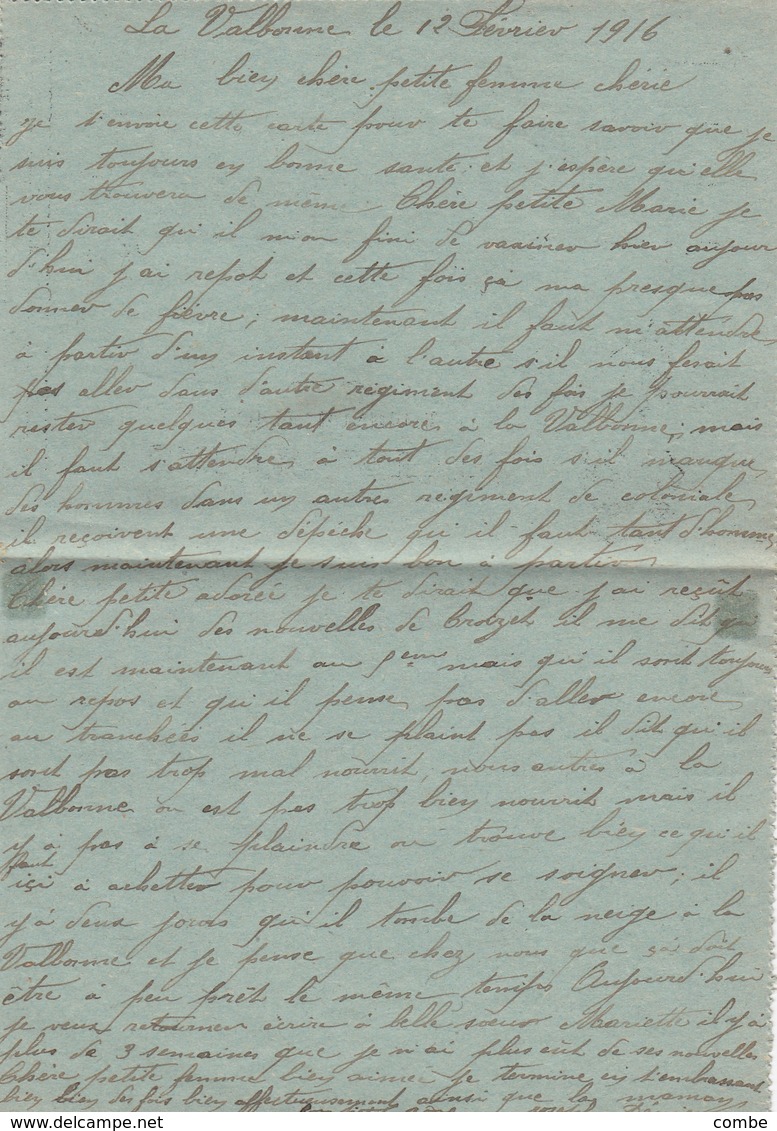 La Valbonne le 12 Février 1916
Ma bien chère petite femme chérie
je t'envoie cette carte pour te faire savoir que je
suis toujours en bonne santé et j'espère qu'elle
vous trouvera de même. Chère petite Marie je
te dirait qu'il m'on fini de vacciner hier aujour
d'hui j'ai repot et cette fois ça ma presque pas
donner de fièvre; maintenant il faut m'attendre
à partir d'un instant à l'autre s'il nous ferait
pas aller dans d'autre régiment des fois je pourrait
rester quelques tant encores à la Valbonne; mais
il faut s'attendre à tout des fois s'il manque
des hommes dans un autres régiment de coloniale
il reçoivent une dépêche qu'il faut tant d'hommes
alors maintenant je suis bon à partir
Chère petite adorée je te dirait que j'ai reçût
aujourd'hui des nouvelles de Crozet il me dit qu
il est maintenant au 9em mais qu'il sont toujours
au repos et qu'il pense pas d'aller encore
au tranchées il ne se plaint pas il dit qu'il
sont pas trop mal nourrit, nous autres à la
Valbonne on est pas trop bien nourrit mais il
y à pas à se plaindre on trouve bien ce qu'il
faut
içi à achetter pour pouvoir se soigner; il
y'à deux jours qu'il tombe de la neige à la
Valbonne et je pense que chez nous que ça doit
être à peu prêt le même temps Aujourd'hui
je veux retourner écrire à belle soeur Mariette il y'à
plus de 3 semaines que je n'ai plus eût de ses nouvelles
Chère petite femme bien aimée je termine en t'embrassant
bien bien des fois bien affectueusement ainsi que la maman
combe